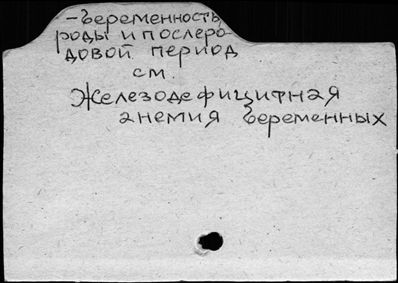 -беременность
роды и послеро-
довой период
см.
Железодефицитная
анемия беременных